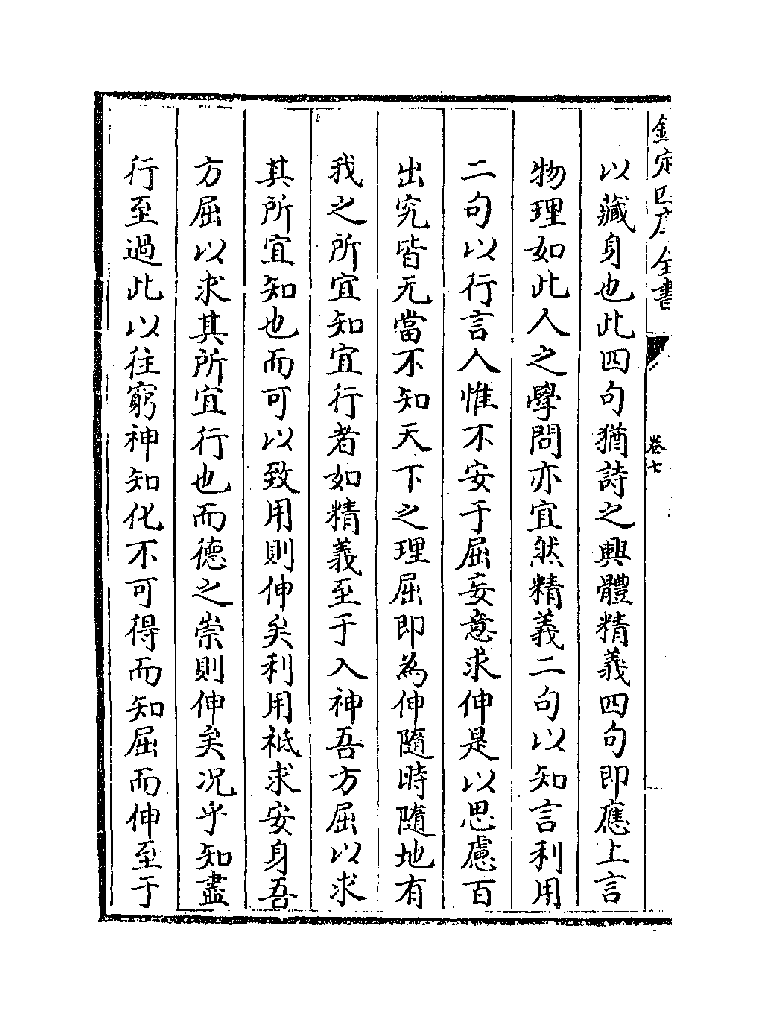 欽定四庫全書
卷七
以藏身也此四句猶詩之興體精義四句即應上言
物理如此人之學問亦宜然精義二句以知言利用
二句以行言人惟不安于屈妄意求伸是以思慮百
出究皆无當不知天下之理屈即為伸隨時隨地有
我之所宜知宜行者如精義至于入神吾方屈以求
其所宜知也而可以致用則伸矣利用祗求安身吾
方屈以求其所宜行也而德之崇則伸矣况乎知盡
行至過此以往窮神知化不可得而知屈而伸至于